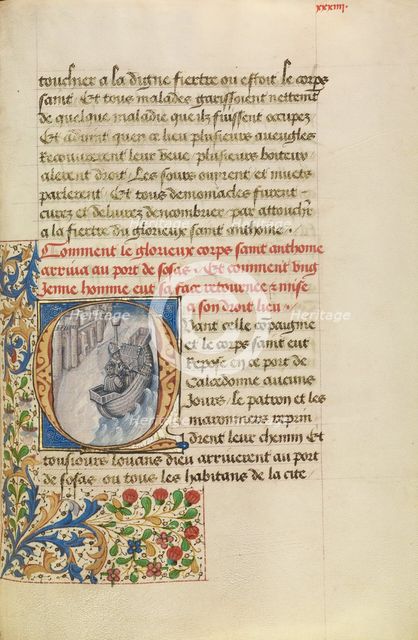 xxxiiii·
touchier a la digne fiertre ou estoit le corps
saint / Et tous malades garissoient nettement
de quelque maladie que ilz fuissent occupez
Et advint qu'en ce lieu plusieurs aveugles
Recouvrerent leur veue / plusieurs boiteux
alerent droit / Les sours ouirent et muets
parlerent Et tous demoniacles furent ·
curez et delivrez d'encombrier par attouch'r
a la fiertre du glorieux saint anthoine ·
Comment le glorieux corps saint anthoine
arriva au port de sosas · Et comment vng
Jenne homme eut sa face retournee & mise
a son droit lieu ·
Quant celle compaignie
et le corps saint eut
Repose en ce port de
Calcedonne aucuns
Jours / Le patron et les
maronniers reprin
drent leur chemin Et
tousiours louans dieu arriverent au port
de sosas ou tous les habitans de la cite
Heritage
Heritage
Heritage
Heritage
Heritage